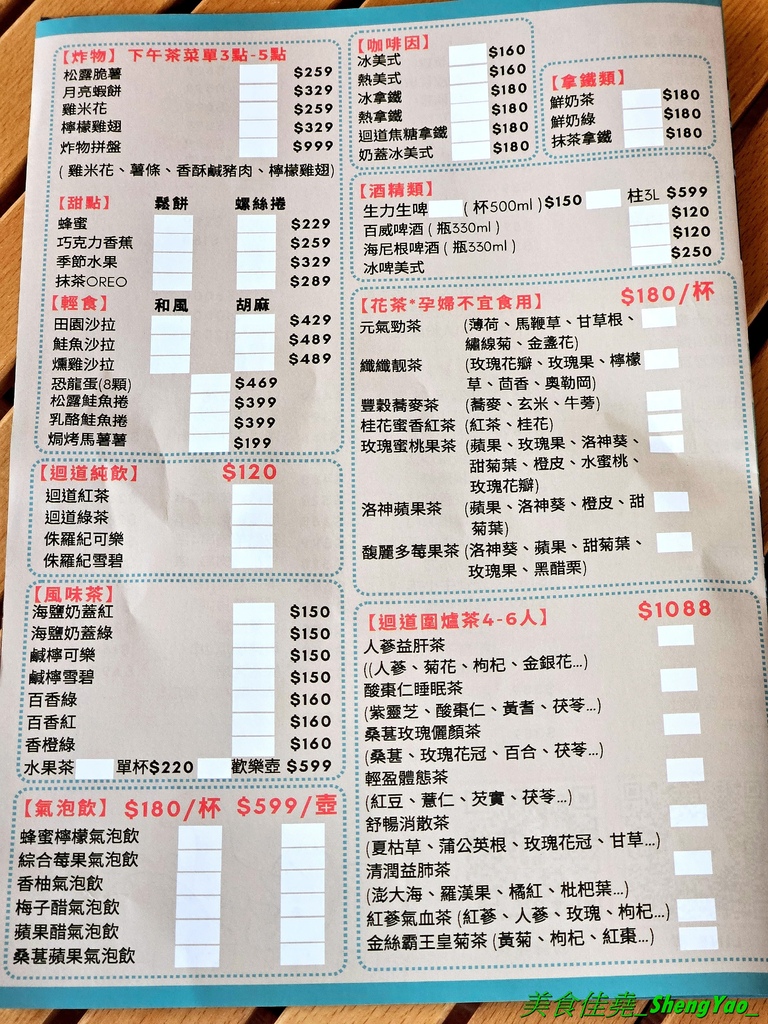 【炸物】下午茶菜單3點-5點
松露脆薯 $259
月亮蝦餅 $329
雞米花 $259
檸檬雞翅 $329
炸物拼盤 $999
(雞米花、薯條、香酥鹹豬肉、檸檬雞翅)
【甜點】 鬆餅 螺絲捲
蜂蜜 $229
巧克力香蕉 $259
季節水果 $329
抹茶OREO $289
【輕食】 和風 胡麻
田園沙拉 $429
鮭魚沙拉 $489
燻雞沙拉 $489
恐龍蛋(8顆) $469
松露鮭魚捲 $399
乳酪鮭魚捲 $399
焗烤馬薯薯 $199
【迴道純飲】 $120
迴道紅茶
迴道綠茶
侏羅紀可樂
侏羅紀雪碧
【風味茶】
海鹽奶蓋紅 $150
海鹽奶蓋綠 $150
鹹檸可樂 $150
鹹檸雪碧 $150
百香綠 $160
百香紅 $160
香橙綠 $160
水果茶 單杯$220 歡樂壺 $599
【氣泡飲】 $180/杯 $599/壺
蜂蜜檸檬氣泡飲
綜合莓果氣泡飲
香柚氣泡飲
梅子醋氣泡飲
蘋果醋氣泡飲
桑葚蘋果氣泡飲
【咖啡因】
冰美式 $160
熱美式 $160
冰拿鐵 $180
熱拿鐵 $180
迴道焦糖拿鐵 $180
奶蓋冰美式 $180
【拿鐵類】
鮮奶茶 $180
鮮奶綠 $180
抹茶拿鐵 $180
【酒精類】
生力生啤 (杯500ml)$150 柱3L $599
百威啤酒(瓶330ml) $120
海尼根啤酒(瓶330ml) $120
冰啤美式 $250
【花茶*孕婦不宜食用】 $180/杯
元氣勁茶 (薄荷、馬鞭草、甘草根、
繡線菊、金盞花)
纖纖靓茶 (玫瑰花瓣、玫瑰果、檸檬
草、茴香、奧勒岡)
豐穀蕎麥茶 (蕎麥、玄米、牛蒡)
桂花蜜香紅茶 (紅茶、桂花)
玫瑰蜜桃果茶 (蘋果、玫瑰果、洛神葵、
甜菊葉、橙皮、水蜜桃、
玫瑰花瓣)
洛神蘋果茶 (蘋果、洛神葵、橙皮、甜
菊葉)
馥麗多莓果茶 (洛神葵、蘋果、甜菊葉、
玫瑰果、黑醋栗)
【迴道圍爐茶4-6人】 $1088
人蔘益肝茶
((人蔘、菊花、枸杞、金銀花...)
酸棗仁睡眠茶
(紫靈芝、酸棗仁、黃耆、茯苓...)
桑葚玫瑰儷顏茶
(桑葚、玫瑰花冠、百合、茯苓...)
輕盈體態茶
(紅豆、薏仁、芡實、茯苓...)
舒暢消散茶
(夏枯草、蒲公英根、玫瑰花冠、甘草...)
清潤益肺茶
(澎大海、羅漢果、橘紅、枇杷葉...)
紅蔘氣血茶 (紅蔘、人蔘、玫瑰、枸杞...)
金絲霸王皇菊茶 (黃菊、枸杞、紅棗...)
美食佳堯_ShengYao_